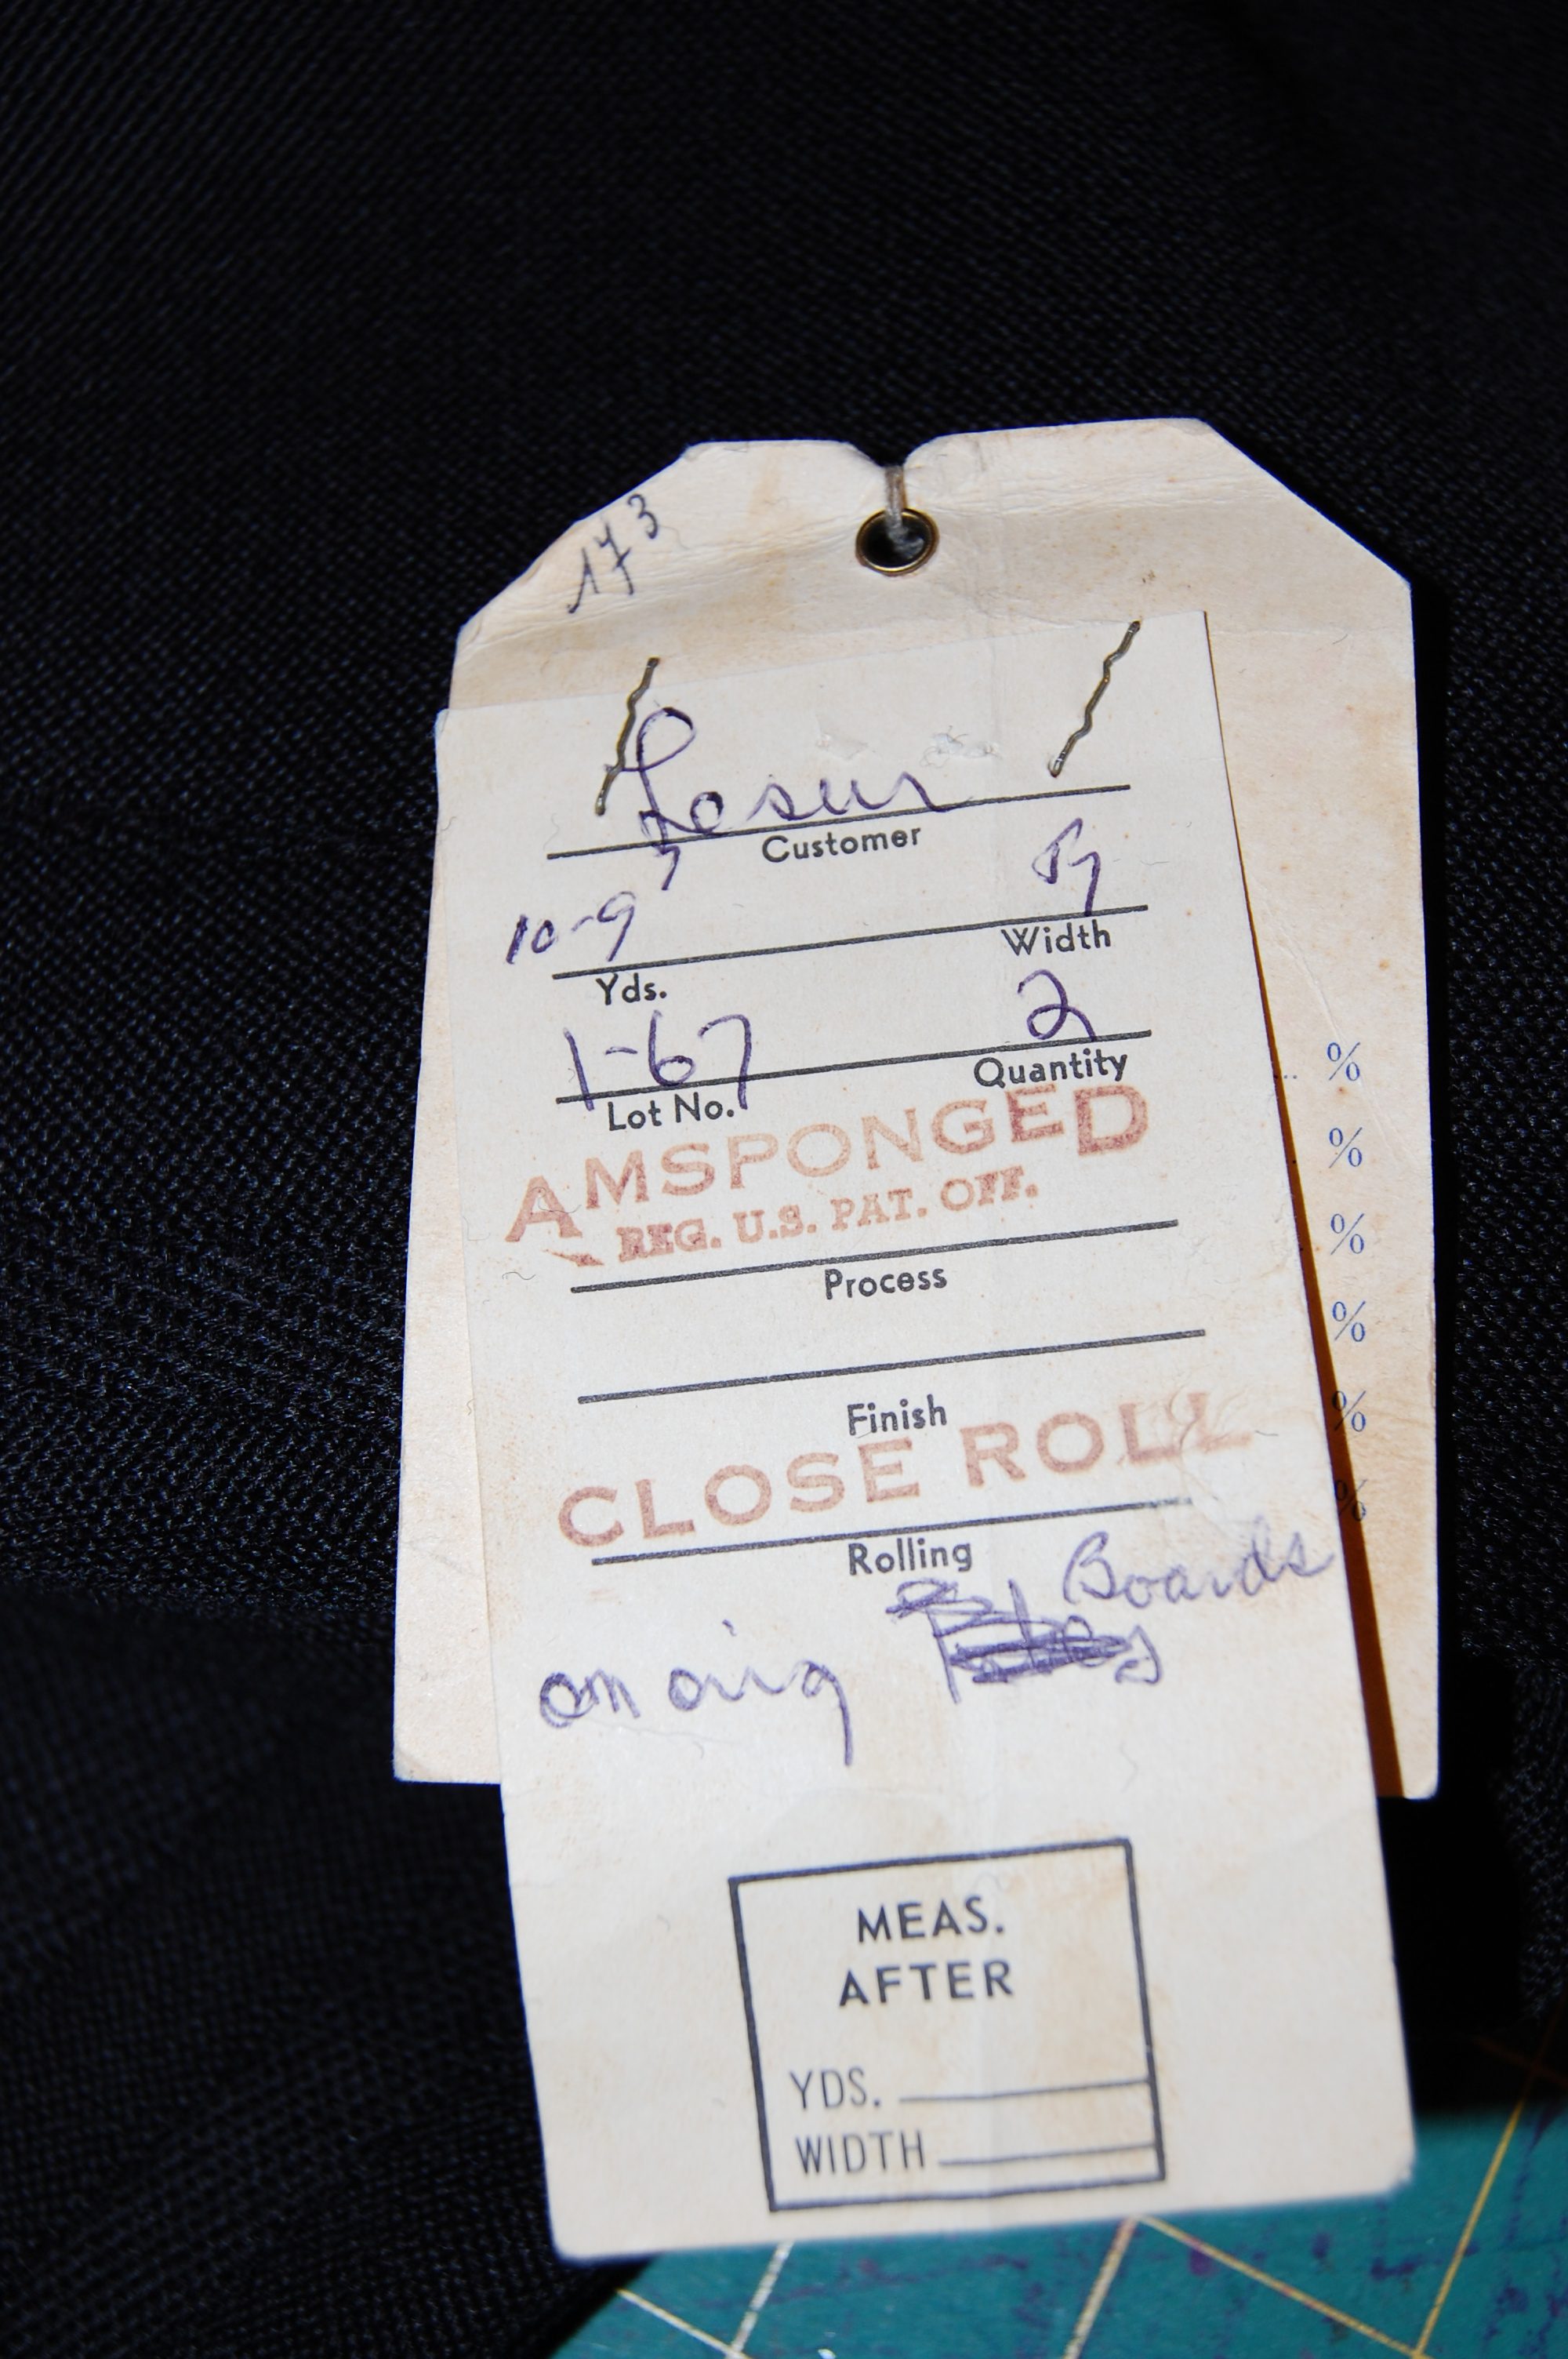 173
Lesur
Customer
10-9
Yds. Width
1-67 2
Lot No. Quantity
AMSPONGED
REG. U.S. PAT. OFF.
Process
Finish
CLOSE ROLL
Rolling
Boards
on orig
MEAS.
AFTER
YDS.
WIDTH
%
%
%
%
%
%